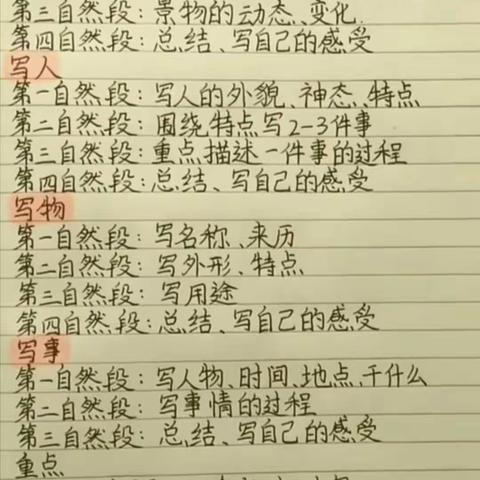 第三自然段:景物的动态、变化.
第四自然段:总结、写自己的感受
写人
第一自然段:写人的外貌、神态、特点
第二自然段:围绕特点写2-3件事
第三自然段:重点描述一件事的过程
第四自然段:总结、写自己的感受
写物
第一自然段:写名称、来历
第二自然段:写外形、特点
第三自然段:写用途
第四自然段:总结、写自己的感受
写事
第一自然段:写人物、时间、地点、干什么
第二自然段:写事情的过程
第三自然段:总结、写自己的感受
重点